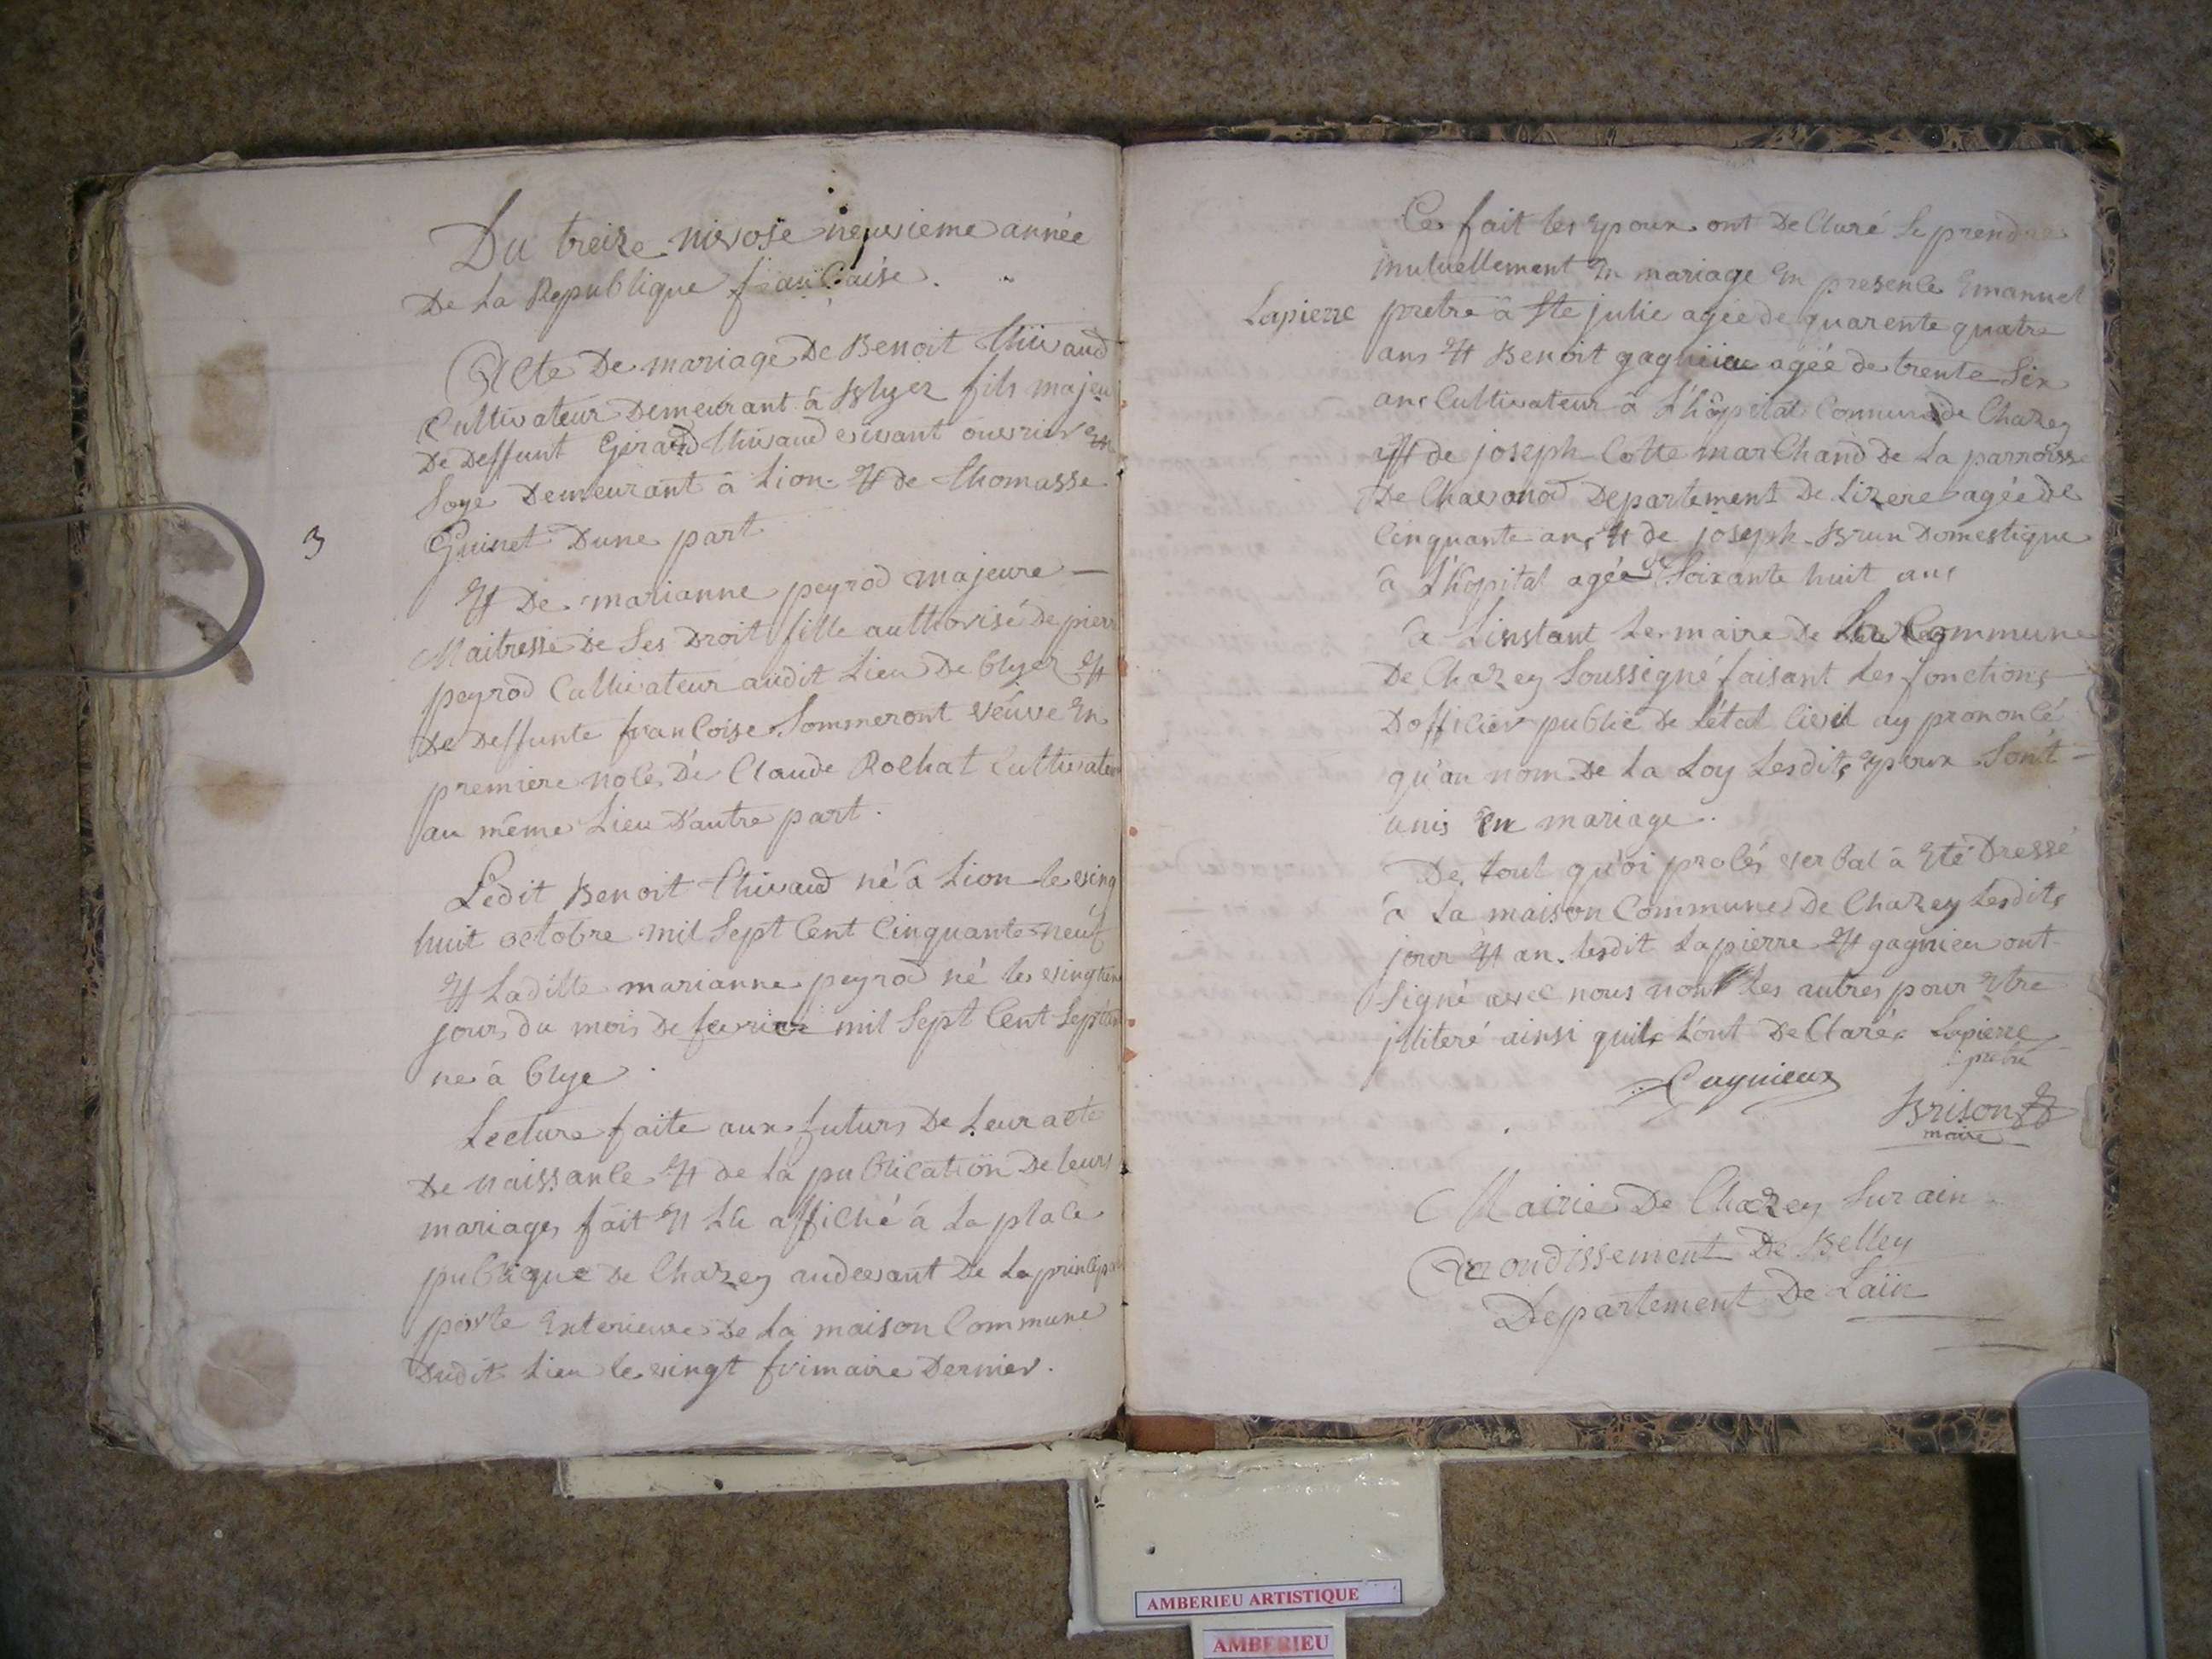 Du treize nivose neuvieme année
De La Republique francaise.
Acte De mariage De Benoit thivaud
Cultivateur Demeurant à Blyez fils majeu
De Deffunt Gerard thivaud vivant ouvrier En
Soye Demeurant à Lion Et de thomasse
Guinet Dune part
3
Et De marianne peyrod majeure —
Maitresse De Ses Droit fille authorisé De pierr
peyrod Cultivateur audit Lieu De blyez Et
De Deffunte francoise Sommeront véuve En
premiere noce De Claude Rochat Cultivateu
au même Lieu D'autre part.
Ledit Benoit thivaud né à Lion le ving
huit octobre mil Sept Cent Cinquante neuf
Et Laditte marianne peyrod né le vingtiem
jour du mois De fevrier mil Sept Cent Septan
ne à blye.
Lecture faite aux futurs De Leur acte
De naissance Et de la publication De leurs
mariages fait Et Lu affiché à la place
publique De Chazey audevant De La princip
porte Exterieure De la maison Commune
Dudit Lieu le vingt frimaire Dernier.
Ce fait les Epoux ont DeClaré Se prendre
mutuellement En mariage En presence Emanuel
Lapierre pretre à Ste julie agée de quarente quatre
ans Et Benoit gagnieu agée de trente Six
ans Cultivateur à L'hôpital Commune de Chazey
Et de joseph Cotte marChand De La parroisse
De Chavanod Departement De Lizere agée de
Cinquante ans Et de joseph Brun Domestique
à L'hôpital agée de Soixante huit ans
à Linstant Le maire De La Commune
De Chazey Soussigné faisant les fonctions
Dofficier publie De Létat Civil ay prononcé
qu'au nom De La Loy Lesdits Epoux Sont —
unis En mariage.
De tout quoi procés verbal à Eté Dressé
à La maison Commune De Chazey Lesdits
jour Et an. lesdit Lapierre Et gagnieu ont
Signé avec nous non les autres pour Etre
jlliteré ainsi quils L'ont DeClaré. Lapierre
pretre
Cagnieux
Brison
maire
Mairie De Chazey Sur ain
Arrondissement De Belley
Departement De Laïn
AMBERIEU ARTISTIQUE
AMBERIEU